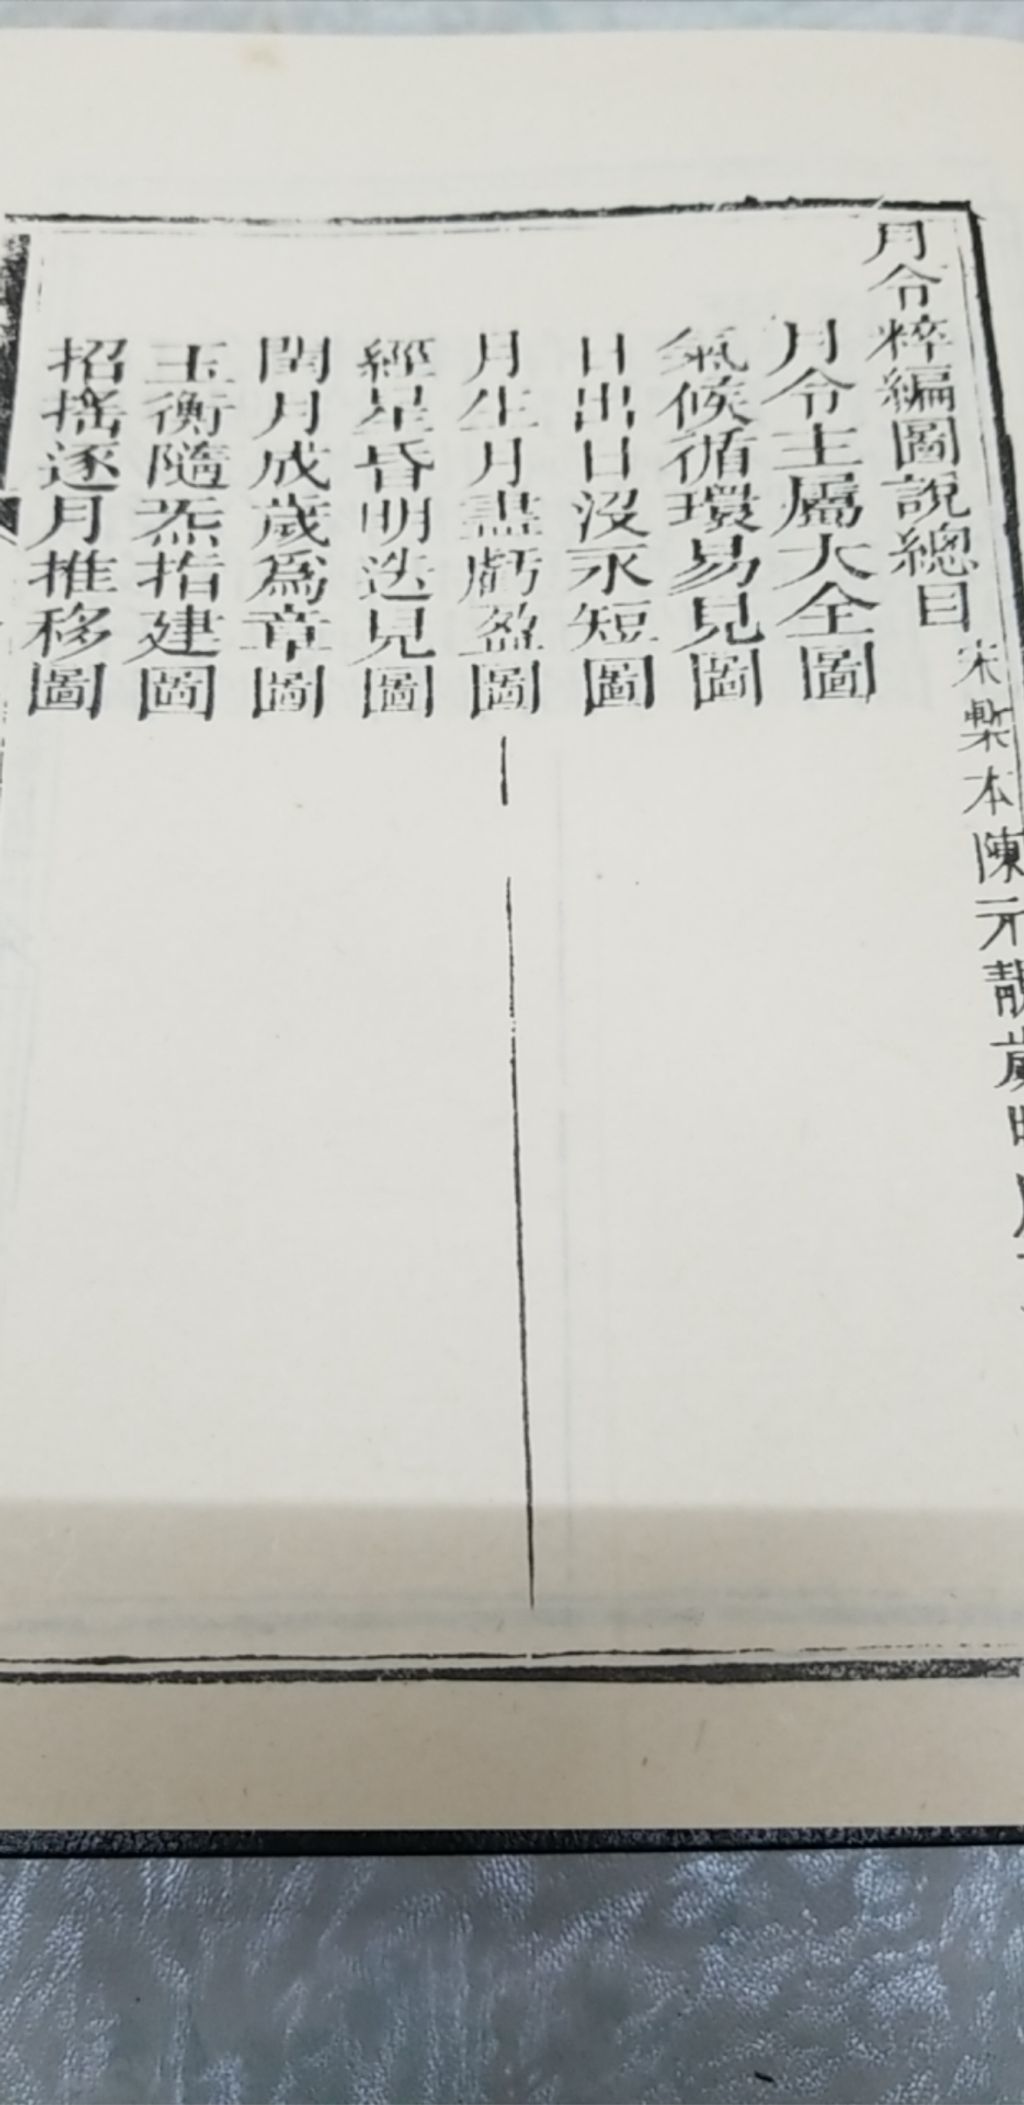 月令粹編圖說總目宋槧本陳元靚歲時
月令主屬大全圖
氣候循環易見圖
日出日沒永短圖
月生月盡虧盈圖
經星昏明迭見圖
閏月成歲爲章圖
玉衡隨炁指建圖
招搖逐月推移圖